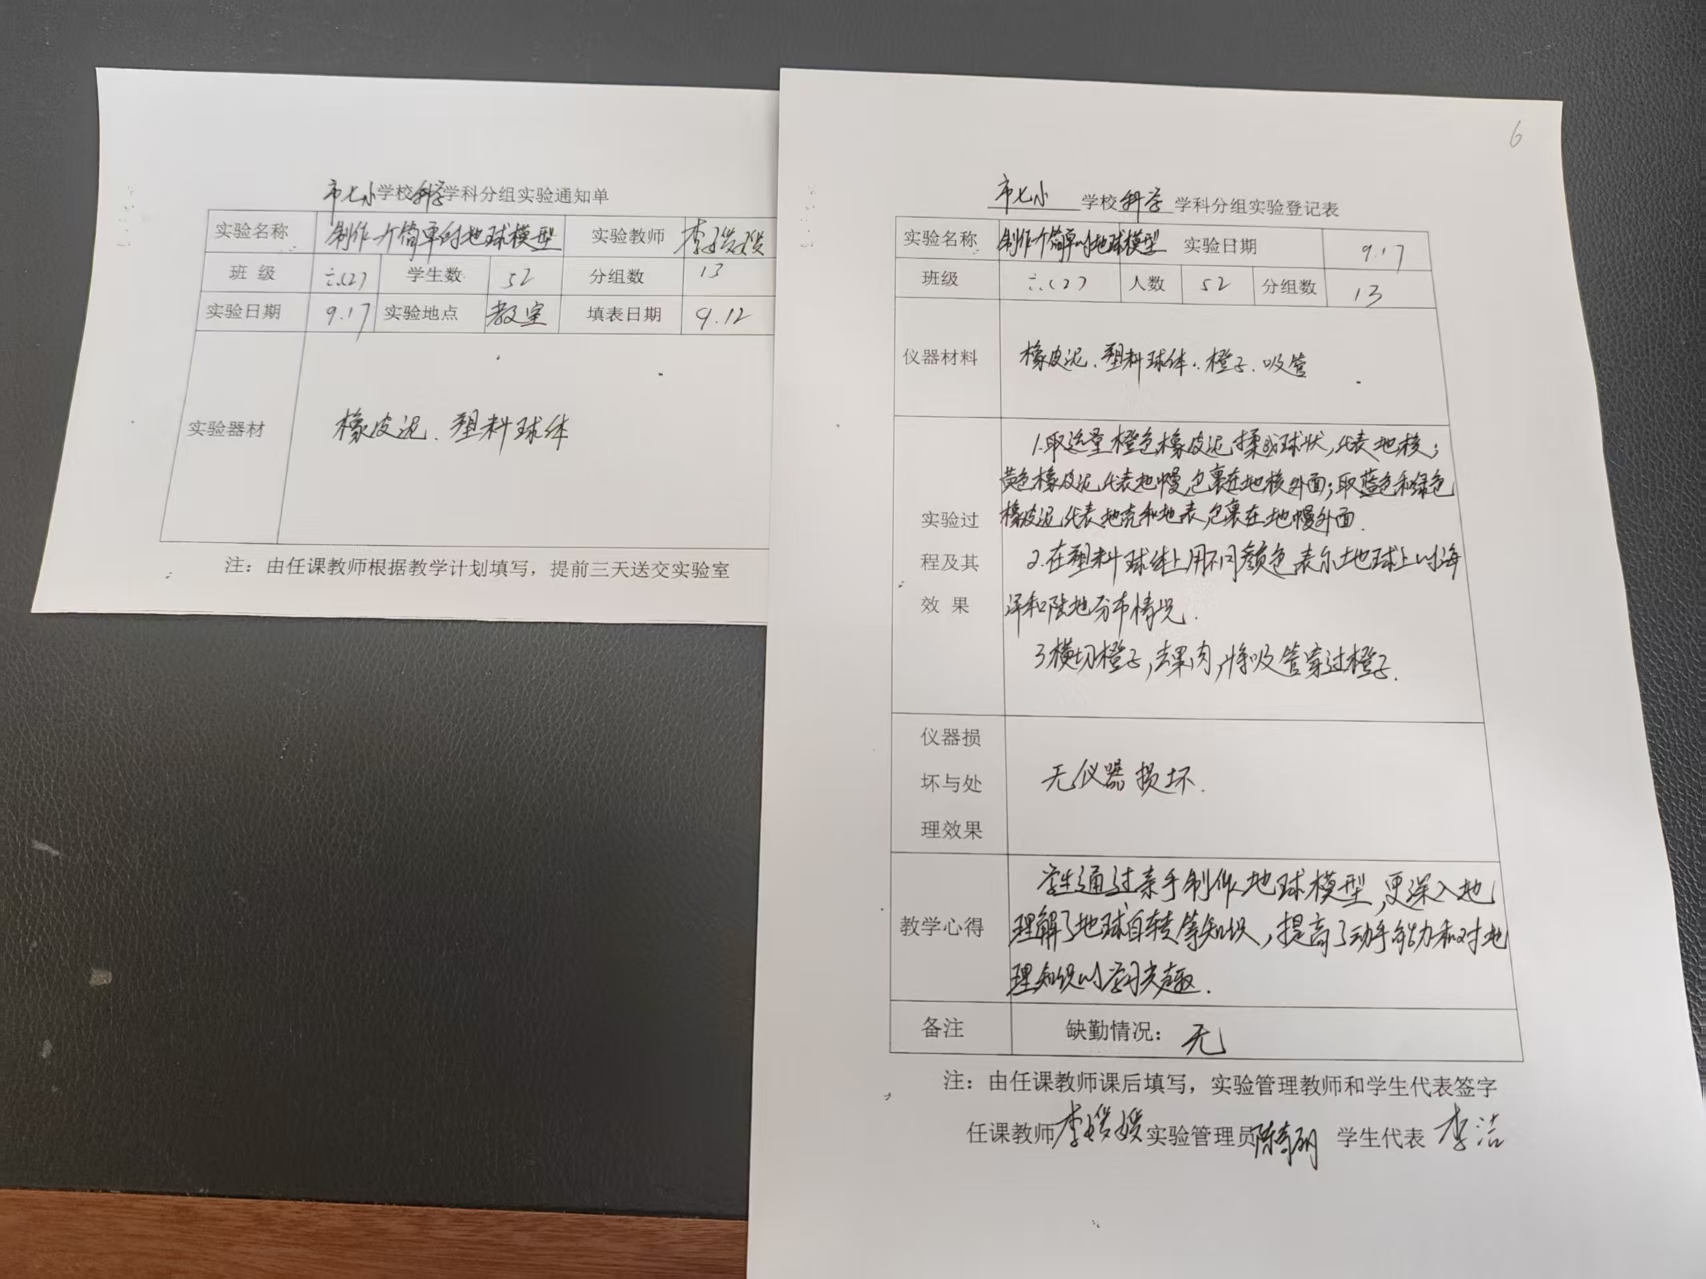 市七小学校科学学科分组实验通知单
实验名称 制作一个简单的地球模型 实验教师 李媛媛
班级 六(2) 学生数 52 分组数 13
实验日期 9.17 实验地点 教室 填表日期 9.12
实验器材 橡皮泥、塑料球体
注：由任课教师根据教学计划填写，提前三天送交实验室
6
市七小 学校 科学 学科分组实验登记表
实验名称 制作一个简单的地球模型 实验日期 9.17
班级 六(2) 人数 52 分组数 13
仪器材料 橡皮泥、塑料球体、橙子、吸管
实验过程及其效果
1.取适量橙色橡皮泥揉成球状,代表地核;
黄色橡皮泥代表地幔,包裹在地核外面;取蓝色和绿色
橡皮泥代表地壳和地表,包裹在地幔外面.
2.在塑料球体上用不同颜色表示地球上的海
洋和陆地分布情况.
3.横切橙子,去果肉,将吸管穿过橙子.
仪器损坏与处理效果 无仪器损坏.
教学心得
学生通过亲手制作地球模型,更深入地
理解了地球自转等知识,提高了动手能力和对地
理知识的学习兴趣.
备注 缺勤情况：无
注：由任课教师课后填写，实验管理教师和学生代表签字
任课教师 李媛媛 实验管理员 陈 学生代表 李洁